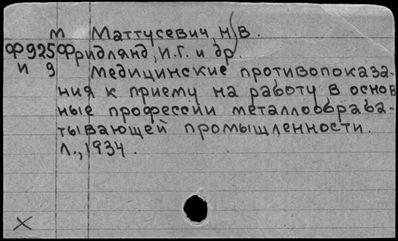 м Маттусевич, Н. В.
Ф925 Фридлянд, И.Г. и др.
и 9 Медицинские противопоказа-
ния к приему на работу в основ
ные профессии металлообраба-
тывающей промышленности.
Л., 1934.
X